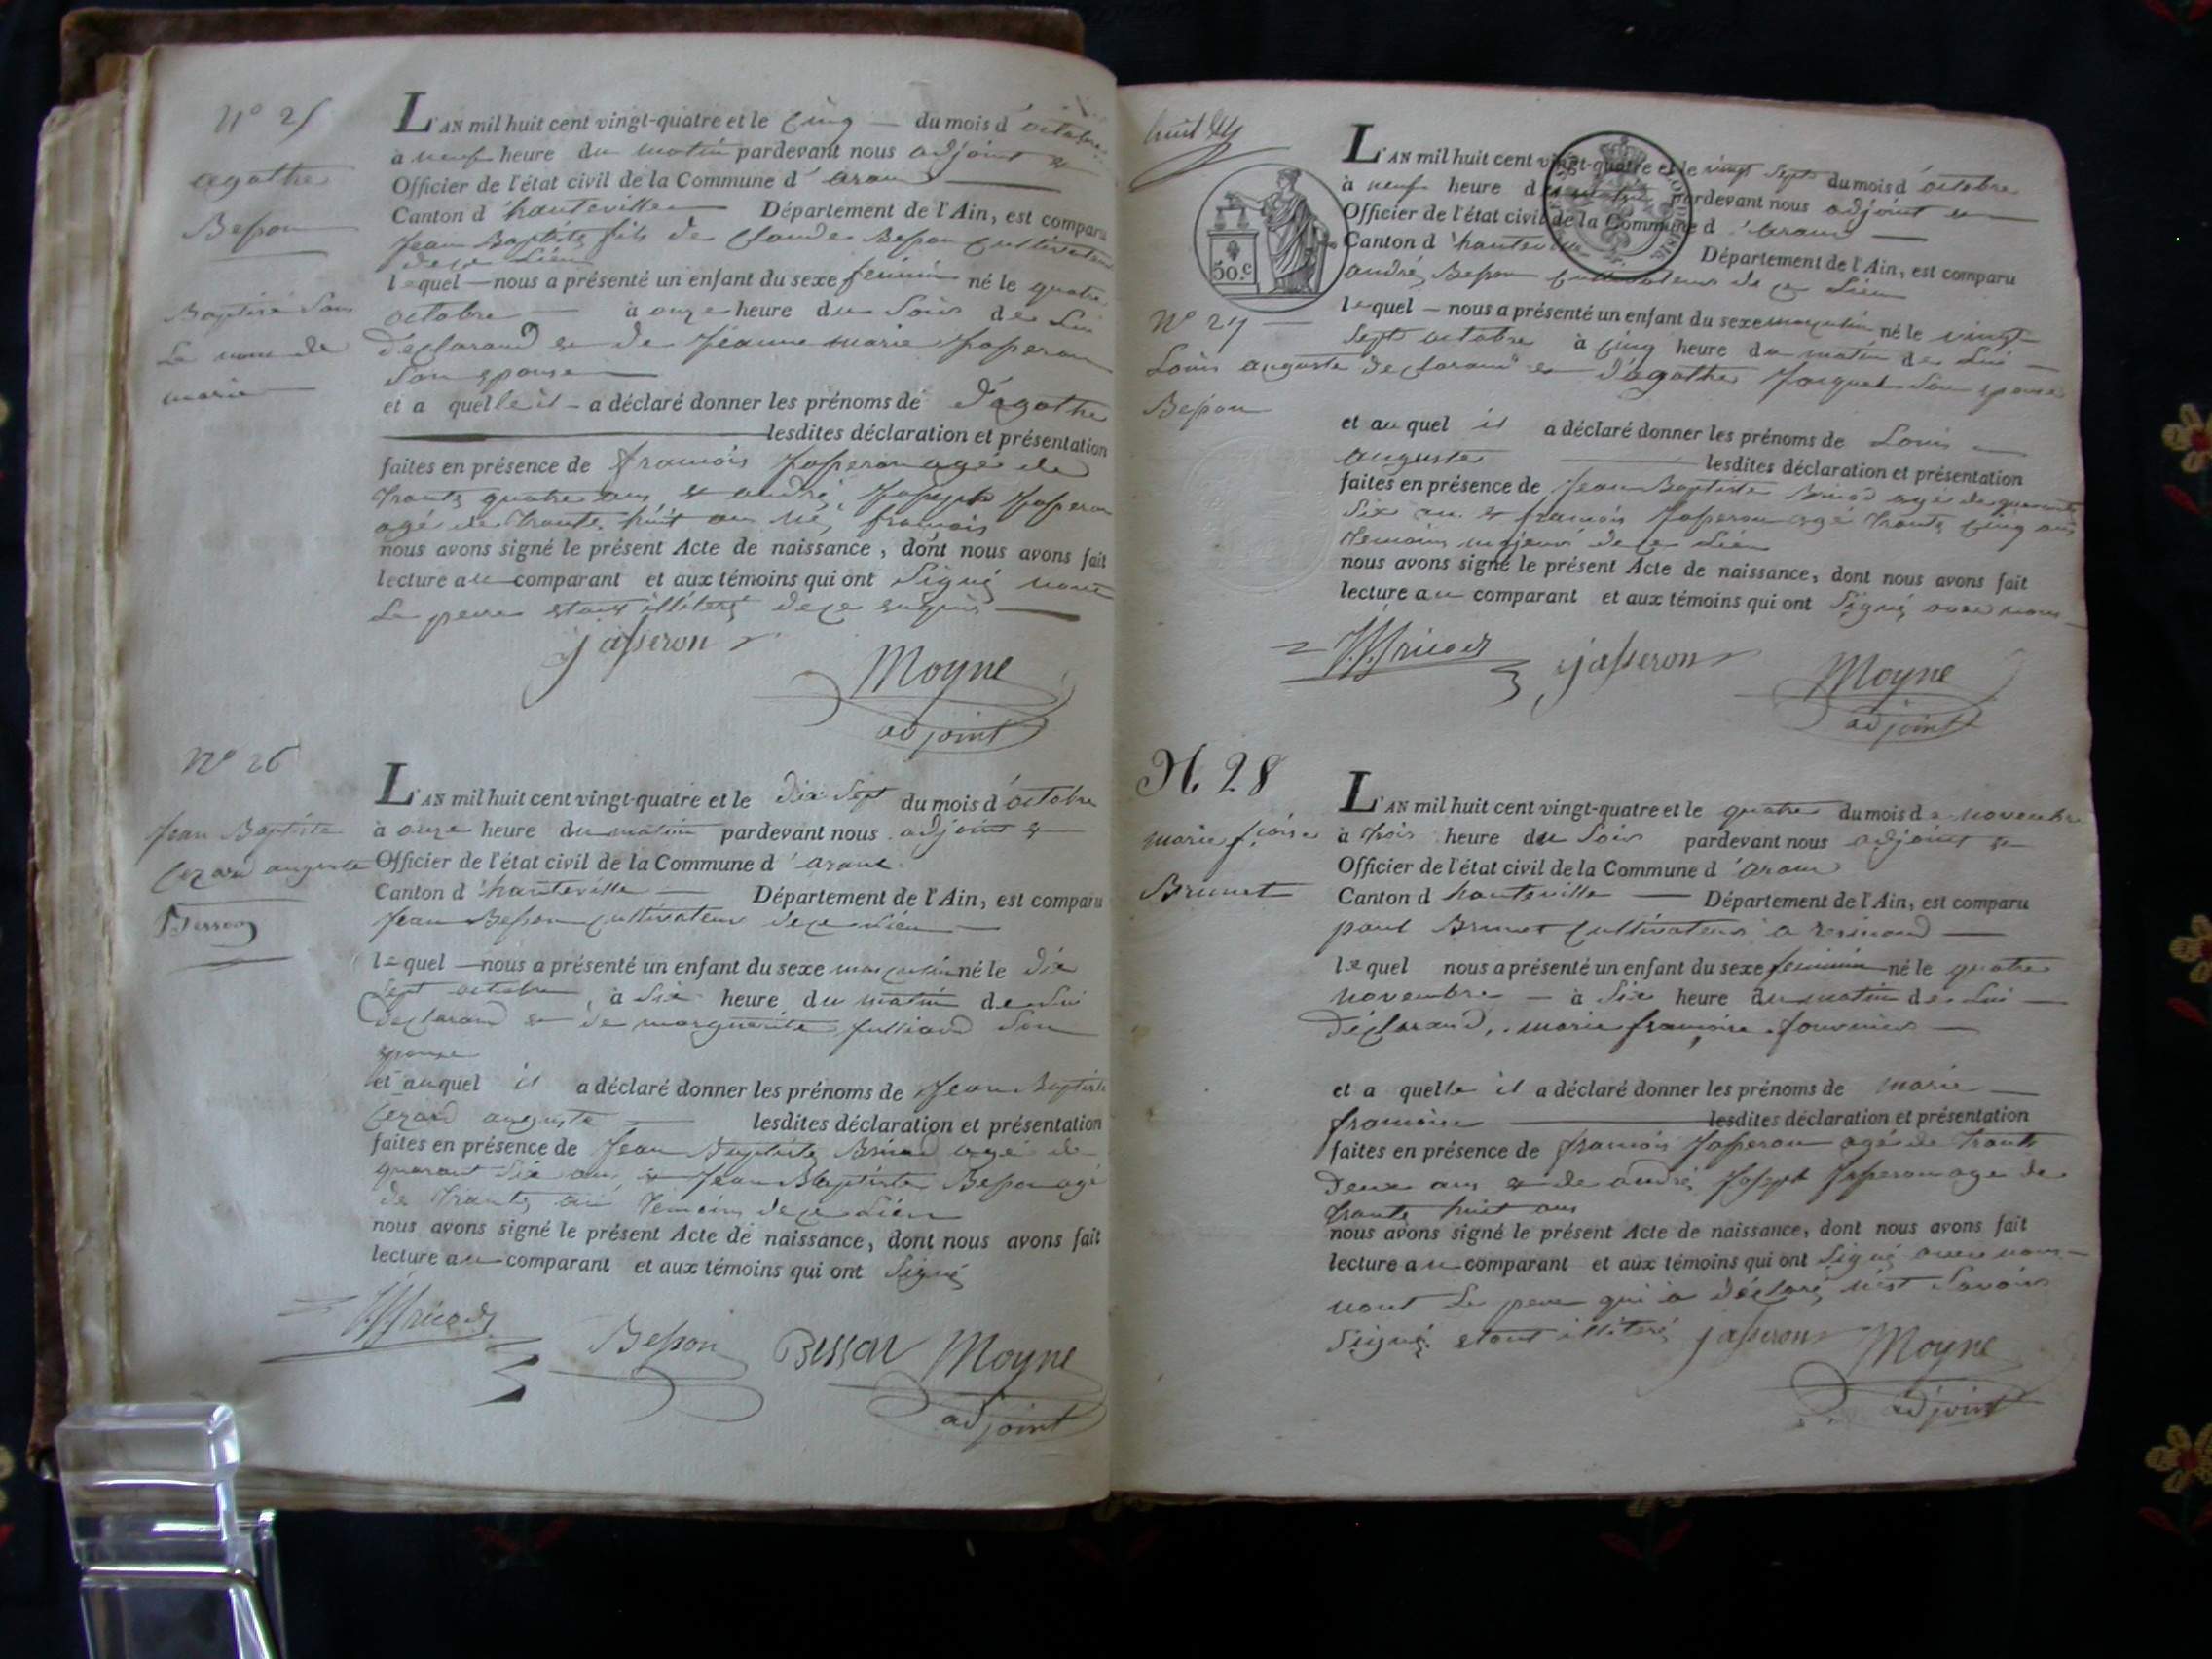 N° 25
agathe
Besson
Baptisé Sous
Le nom de
marie
L'AN mil huit cent vingt-quatre et le cinq du mois d'octobre
à neuf heure du matin pardevant nous adjoint &
Officier de l'état civil de la Commune d'aranc
Canton d'hauteville Département de l'Ain, est comparu
Jean Baptiste fils de Claude Besson Cultivateur
de ce Lieu
lequel nous a présenté un enfant du sexe feminin né le quatre
octobre à onze heure du Soir de Lui
déclarand & de Jeanne marie Jasseron
Son epouse
et a quelle il a déclaré donner les prénoms de d'agathe
lesdites déclaration et présentation
faites en présence de francois Jasseron agé de
trante quatre ans & andré Joseph Jasseron
agé de trante huit ans
nous avons signé le présent Acte de naissance, dont nous avons fait
lecture au comparant et aux témoins qui ont Signé
Le pere etant illiteré de ce enquis
jasseron
Moyne
adjoint
N° 26
Jean Baptiste
Cezard auguste
Besson
L'AN mil huit cent vingt-quatre et le dix Sept du mois d'octobre
à onze heure du matin pardevant nous adjoint &
Officier de l'état civil de la Commune d'aranc
Canton d'hauteville Département de l'Ain, est comparu
Jean Besson Cultivateur de ce Lieu
lequel nous a présenté un enfant du sexe masculin né le dix
Sept octobre à Six heure du matin de Lui
declarand & de marguerite Julliard Son
epouse
et auquel il a déclaré donner les prénoms de Jean Baptiste
Cezard auguste lesdites déclaration et présentation
faites en présence de Jean Baptiste Bricod agé de
quarant Six ans & Jean Baptiste Besson agé
de trante ans temoins de ce Lieu
nous avons signé le présent Acte de naissance, dont nous avons fait
lecture au comparant et aux témoins qui ont Signé
Bricod
Besson Besson Moyne
adjoint
huit
50.c
N° 27
Louis auguste
Besson
L'AN mil huit cent vingt-quatre et le vingt Sept du mois d'octobre
à neuf heure du matin pardevant nous adjoint &
Officier de l'état civil de la Commune d'aranc
Canton d'hauteville Département de l'Ain, est comparu
andré Besson Cultivateur de ce Lieu
lequel nous a présenté un enfant du sexe masculin né le vingt
Sept octobre à cinq heure du matin de Lui
declarand & d'agathe Jacquet Son epouse
et au quel il a déclaré donner les prénoms de Louis
auguste lesdites déclaration et présentation
faites en présence de Jean Baptiste Bricod agé de quarante
Six ans & francois Jasseron agé trante cinq ans
temoins majeurs de ce Lieu
nous avons signé le présent Acte de naissance, dont nous avons fait
lecture au comparant et aux témoins qui ont Signé avec nous
Bricod jasseron Moyne
adjoint
N. 28
marie f.çoise
Brunet
L'AN mil huit cent vingt-quatre et le quatre du mois de novembre
à trois heure du Soir pardevant nous adjoint &
Officier de l'état civil de la Commune d'aranc
Canton d hauteville Département de l'Ain, est comparu
paul Brunet Cultivateur a resinand
lequel nous a présenté un enfant du sexe feminin né le quatre
novembre à Six heure du matin de Lui
déclarand, marie francoise
et a quelle il a déclaré donner les prénoms de marie
francoise lesdites déclaration et présentation
faites en présence de francois Jasseron agé de trante
deux ans & de andré Joseph Jasseron age de
trante huit ans
nous avons signé le présent Acte de naissance, dont nous avons fait
lecture au comparant et aux témoins qui ont Signé avec nous
nont Le pere qui a déclaré Savoir
Signé etant illiteré jasseron Moyne
adjoint